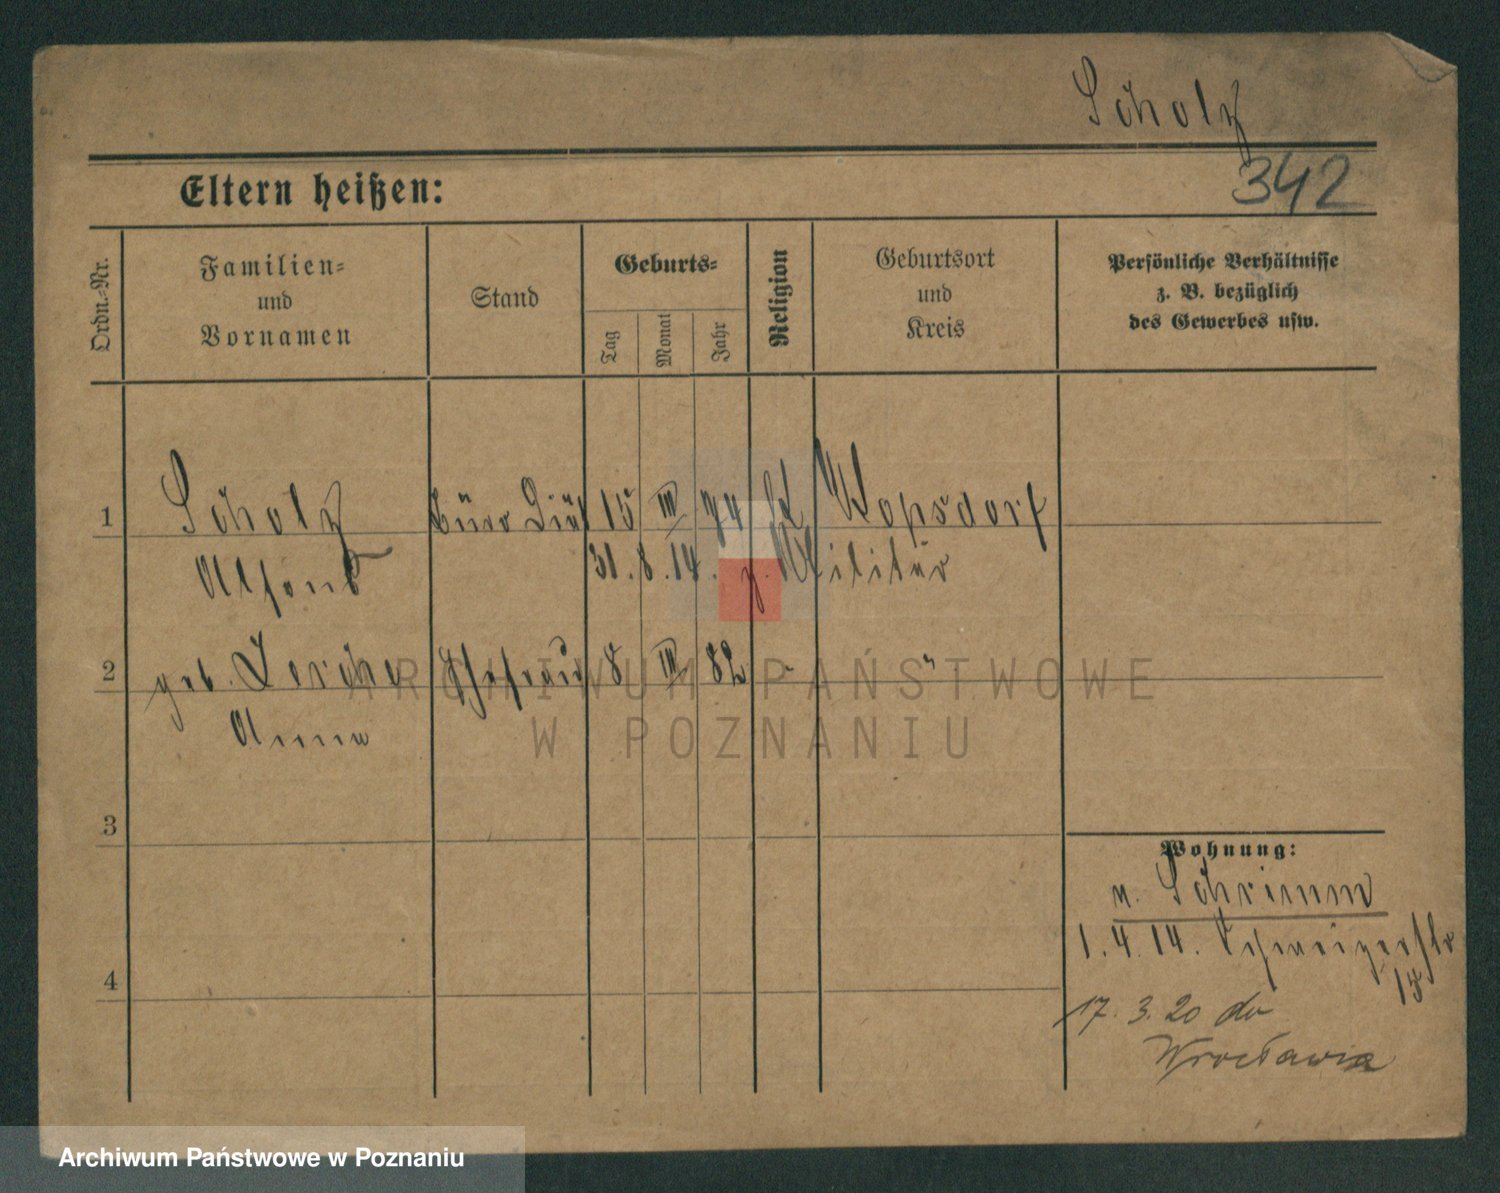 Scholz
342
Eltern heißen:
Ordn.-Nr.
Familien-
und
Vornamen
Stand
Geburts-
Tag
Monat
Jahr
Religion
Geburtsort
und
Kreis
Persönliche Verhältnisse
z. B. bezüglich
des Gewerbes usw.
1 Scholz Büro Diät 15 III 74 Wopsdorf
Alfons 31.8.14. z. Militär
2 geb. Lerche Ehefrau 8 III 82 - "
Anna
3
4
Wohnung:
v. Schrimm
1.4.14. Schweizerstr
15
17.3.20 do
Wrocławia
ARCHIWUM PAŃSTWOWE
W POZNANIU
Archiwum Państwowe w Poznaniu